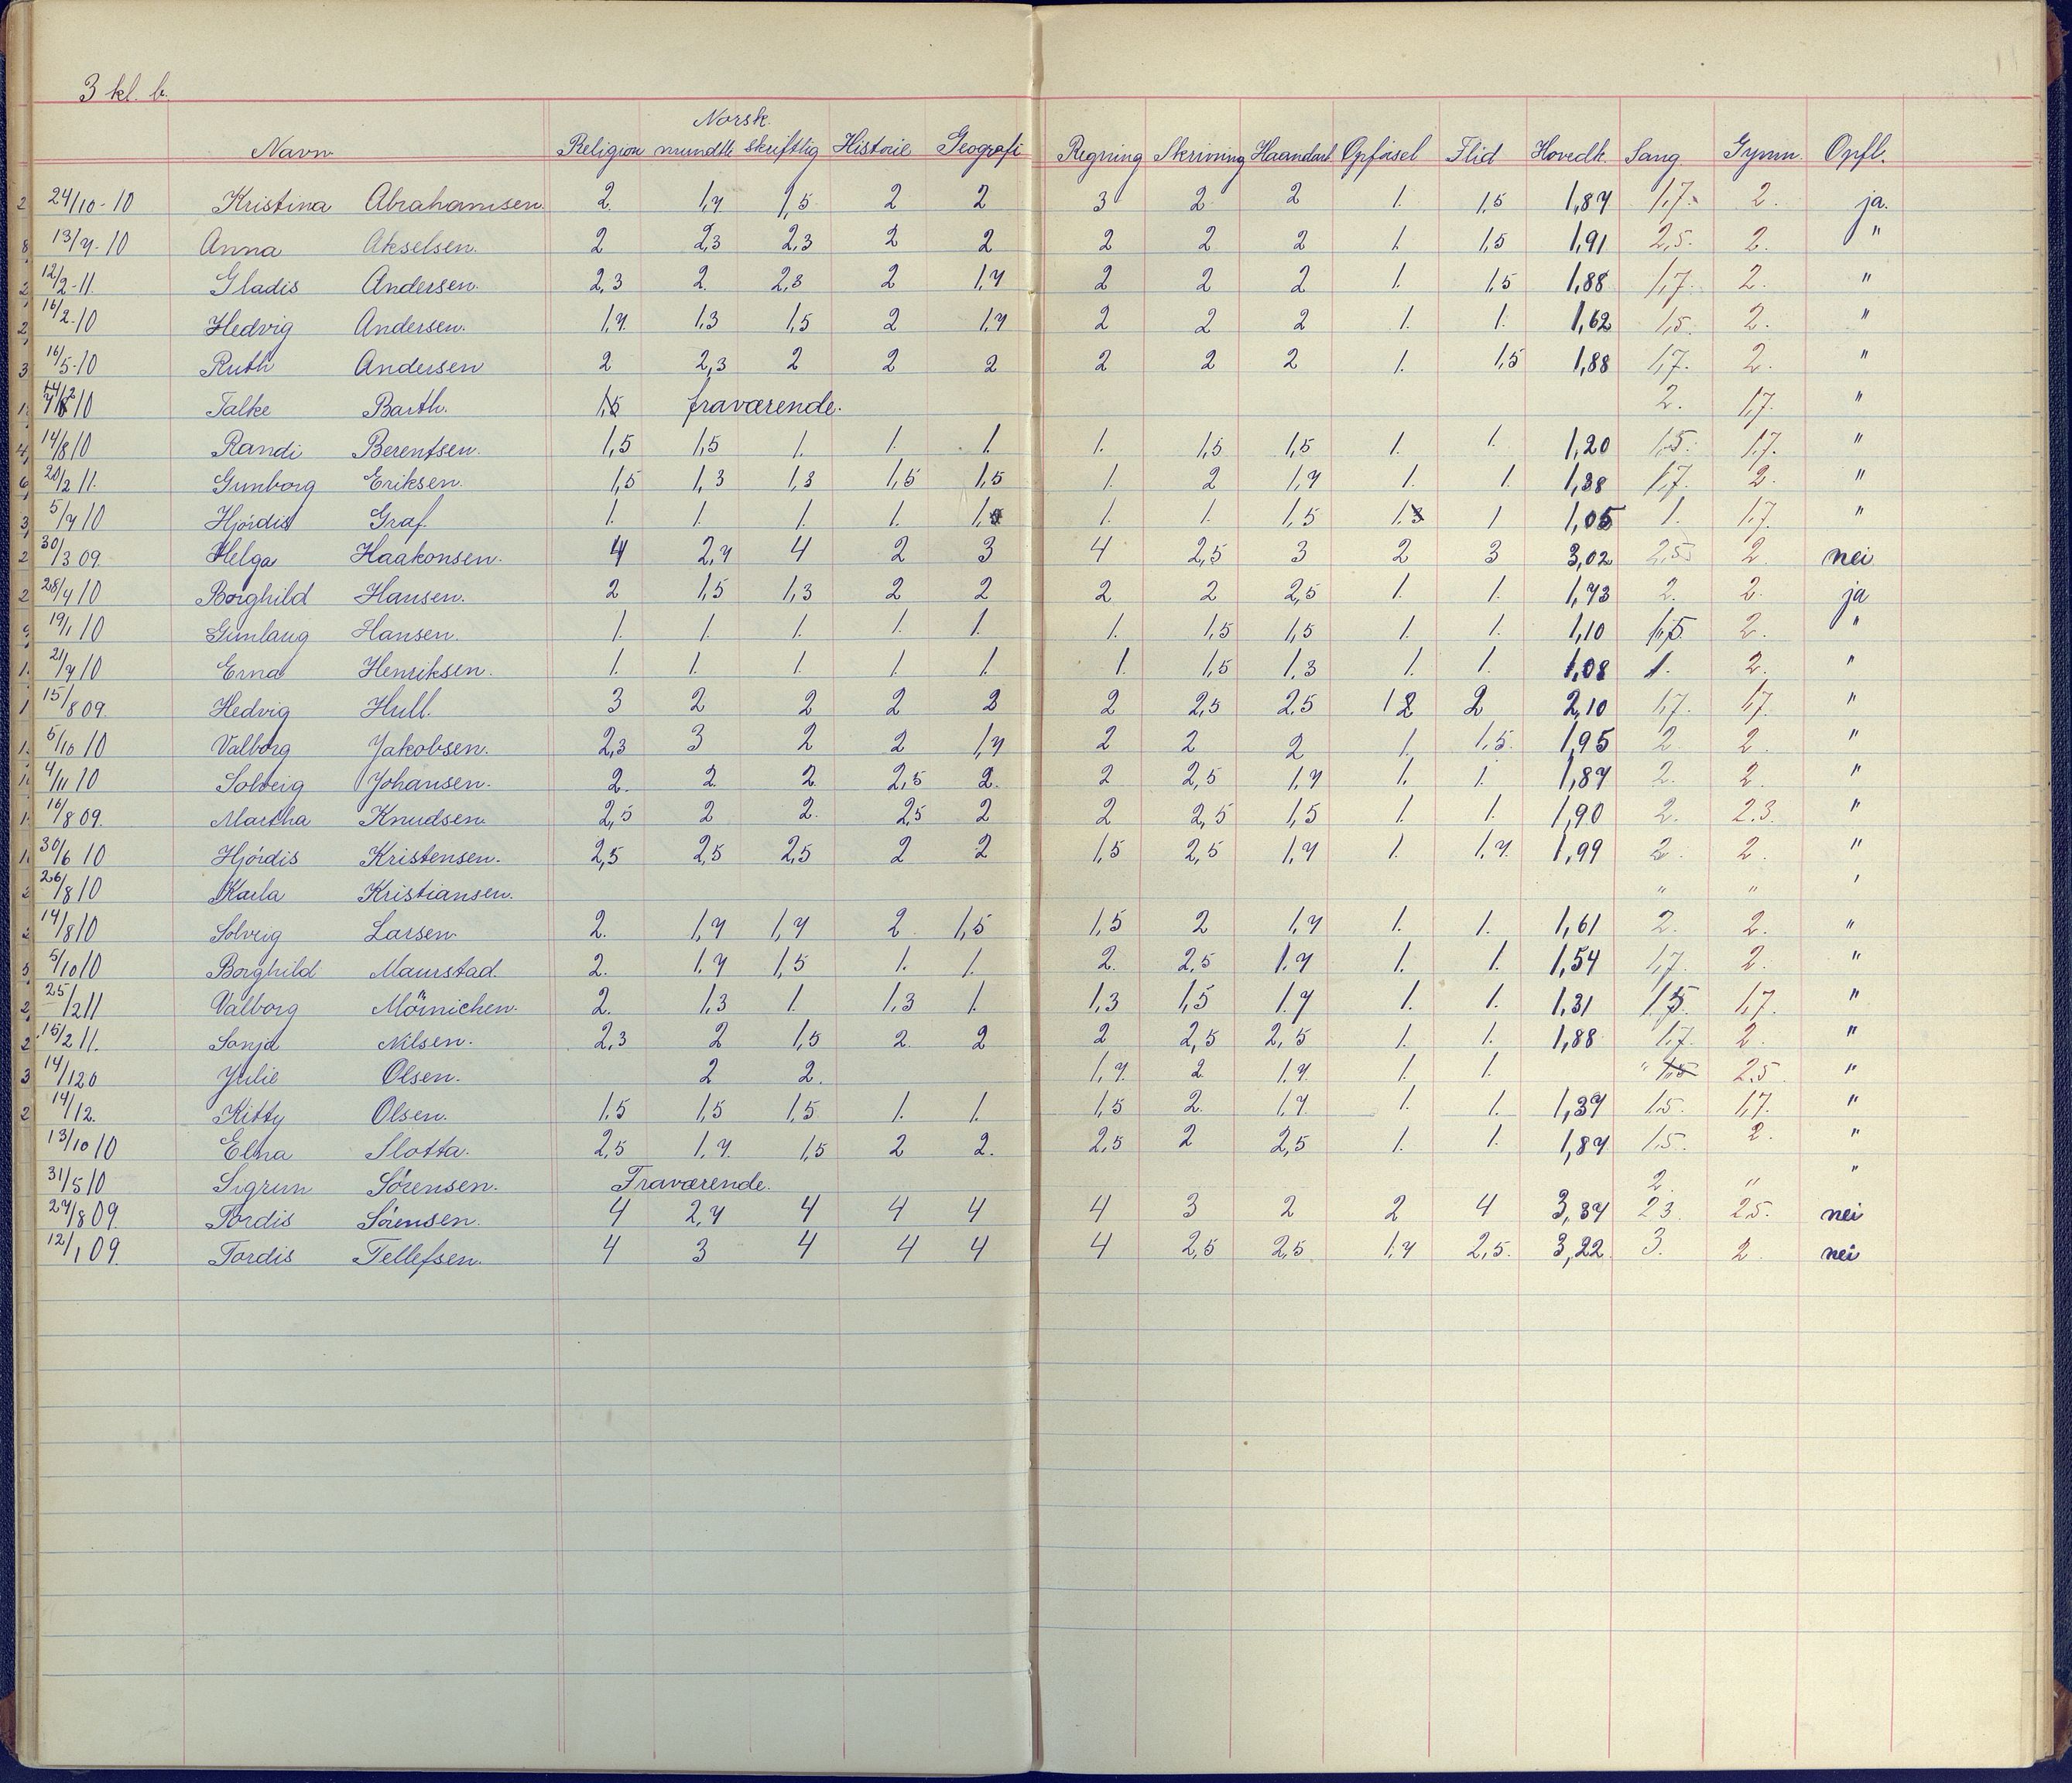 3 kl. b.
Norsk
Navn Religion mundtl skriftlig Historie Geografi Regning Skrivning Haandarb. Opførsel Flid Hovedk. Sang Gymn. Opfl.
24/10-10 Kristina Abrahamsen. 2. 1,7 1,5 2 2 3 2 2 1. 1,5 1,87 1,7. 2. ja.
13/7-10 Anna Akselsen. 2 2,3 2,3 2 2 2 2 2 1. 1,5 1,91 2,5. 2. "
12/2-11. Gladis Andersen. 2,3 2. 2,3 2 1,7 2 2 2 1. 1,5 1,88 1,7. 2. "
16/2-10 Hedvig Andersen. 1,7. 1,3 1,5 2 1,7 2 2 2 1. 1. 1,62 1,5. 2. "
16/5-10 Ruth Andersen 2 2,3 2 2 2 2 2 2 1. 1,5 1,88 1,7. 2. "
10 Talke Barth. 1,5 fraværende. 2. 1,7. "
14/8 10 Randi Berentsen. 1,5 1,5 1. 1. 1. 1. 1,5 1,5 1. 1. 1,20 1,5. 1,7. "
20/2 11. Gunborg Eriksen. 1,5 1,3 1,3 1,5 1,5 1. 2 1,7 1. 1. 1,38 1,7. 2. "
5/7 10 Hjördis Graf. 1. 1. 1. 1. 1. 1. 1. 1,5 1. 1 1,05 1. 1,7. "
30/3 09. Helga Haakonsen. 4 2,7 4 2 3 4 2,5 3 2 3 3,02 2,5 2. nei
28/7 10 Borghild Hansen. 2 1,5 1,3 2 2 2 2 2,5 1. 1. 1,73 2. 2. ja
19/1 10 Gunlaug Hansen. 1. 1. 1. 1. 1. 1. 1,5 1,5 1. 1. 1,10 1,5. 2. "
21/7 10 Erna Henriksen. 1. 1. 1. 1. 1. 1. 1,5 1,3 1. 1. 1,08 1. 2. "
15/8 09. Hedvig Hull. 3 2 2 2 2 2 2,5 2,5 2 2 2,10 1,7. 1,7. "
5/10 10 Valborg Jakobsen. 2,3 3 2 2 1,7 2 2 2 1. 1,5. 1,95 2. 2. "
4/11 10 Solveig Johansen. 2. 2. 2. 2,5 2. 2 2,5 1,7 1. 1. 1,87 2. 2. "
16/8 09. Martha Knudsen. 2,5 2 2. 2,5 2 2 2,5 1,5 1. 1. 1,90 2. 2.3. "
30/6 10 Hjördis Kristensen. 2,5 2,5 2,5 2 2 1,5 2,5 1,7 1. 1,7. 1,99 2. 2. "
26/8 10 Karla Kristiansen. " " '
14/8 10 Solveig Larsen. 2. 1,7 1,7 2. 1,5 1,5 2 1,7 1. 1. 1,61 2. 2. "
5/10 10 Borghild Maurstad. 2. 1,7 1,5 1. 1. 2. 2,5 1,7 1. 1. 1,54 1,7. 2. "
25/2 11 Valborg Mönnichen. 2. 1,3 1. 1,3 1. 1,3 1,5 1,7 1. 1. 1,31 1,5. 1,7. "
15/2 11. Sonja Nilsen. 2,3 2 1,5 2. 2 2 2,5 2,5 1. 1. 1,88 1,7. 2. "
14/1 20 Julie Olsen. 2 2. 1,7. 2. 1,7. 1. 1. " 1,5 2.5. "
14/12. Kitty Olsen. 1,5 1,5 1,5 1. 1. 1,5 2. 1,7. 1. 1. 1,37 1.5. 1,7. "
13/10 10 Elna Slotta. 2,5 1,7. 1,5 2 2. 2,5 2 2,5 1. 1. 1,87 1,5. 2. "
31/5 10 Sigrun Sørensen. Fraværende. 2. " "
27/8 09. Tordis Sørensen. 4 2,7 4 4 4 4 3 2 2 4 3,37 2 3. 2 5. nei
12/1 09. Tordis Tellefsen. 4 3 4 4 4 4 2,5 2,5 1,7 2,5. 3,22. 3. 2. nei